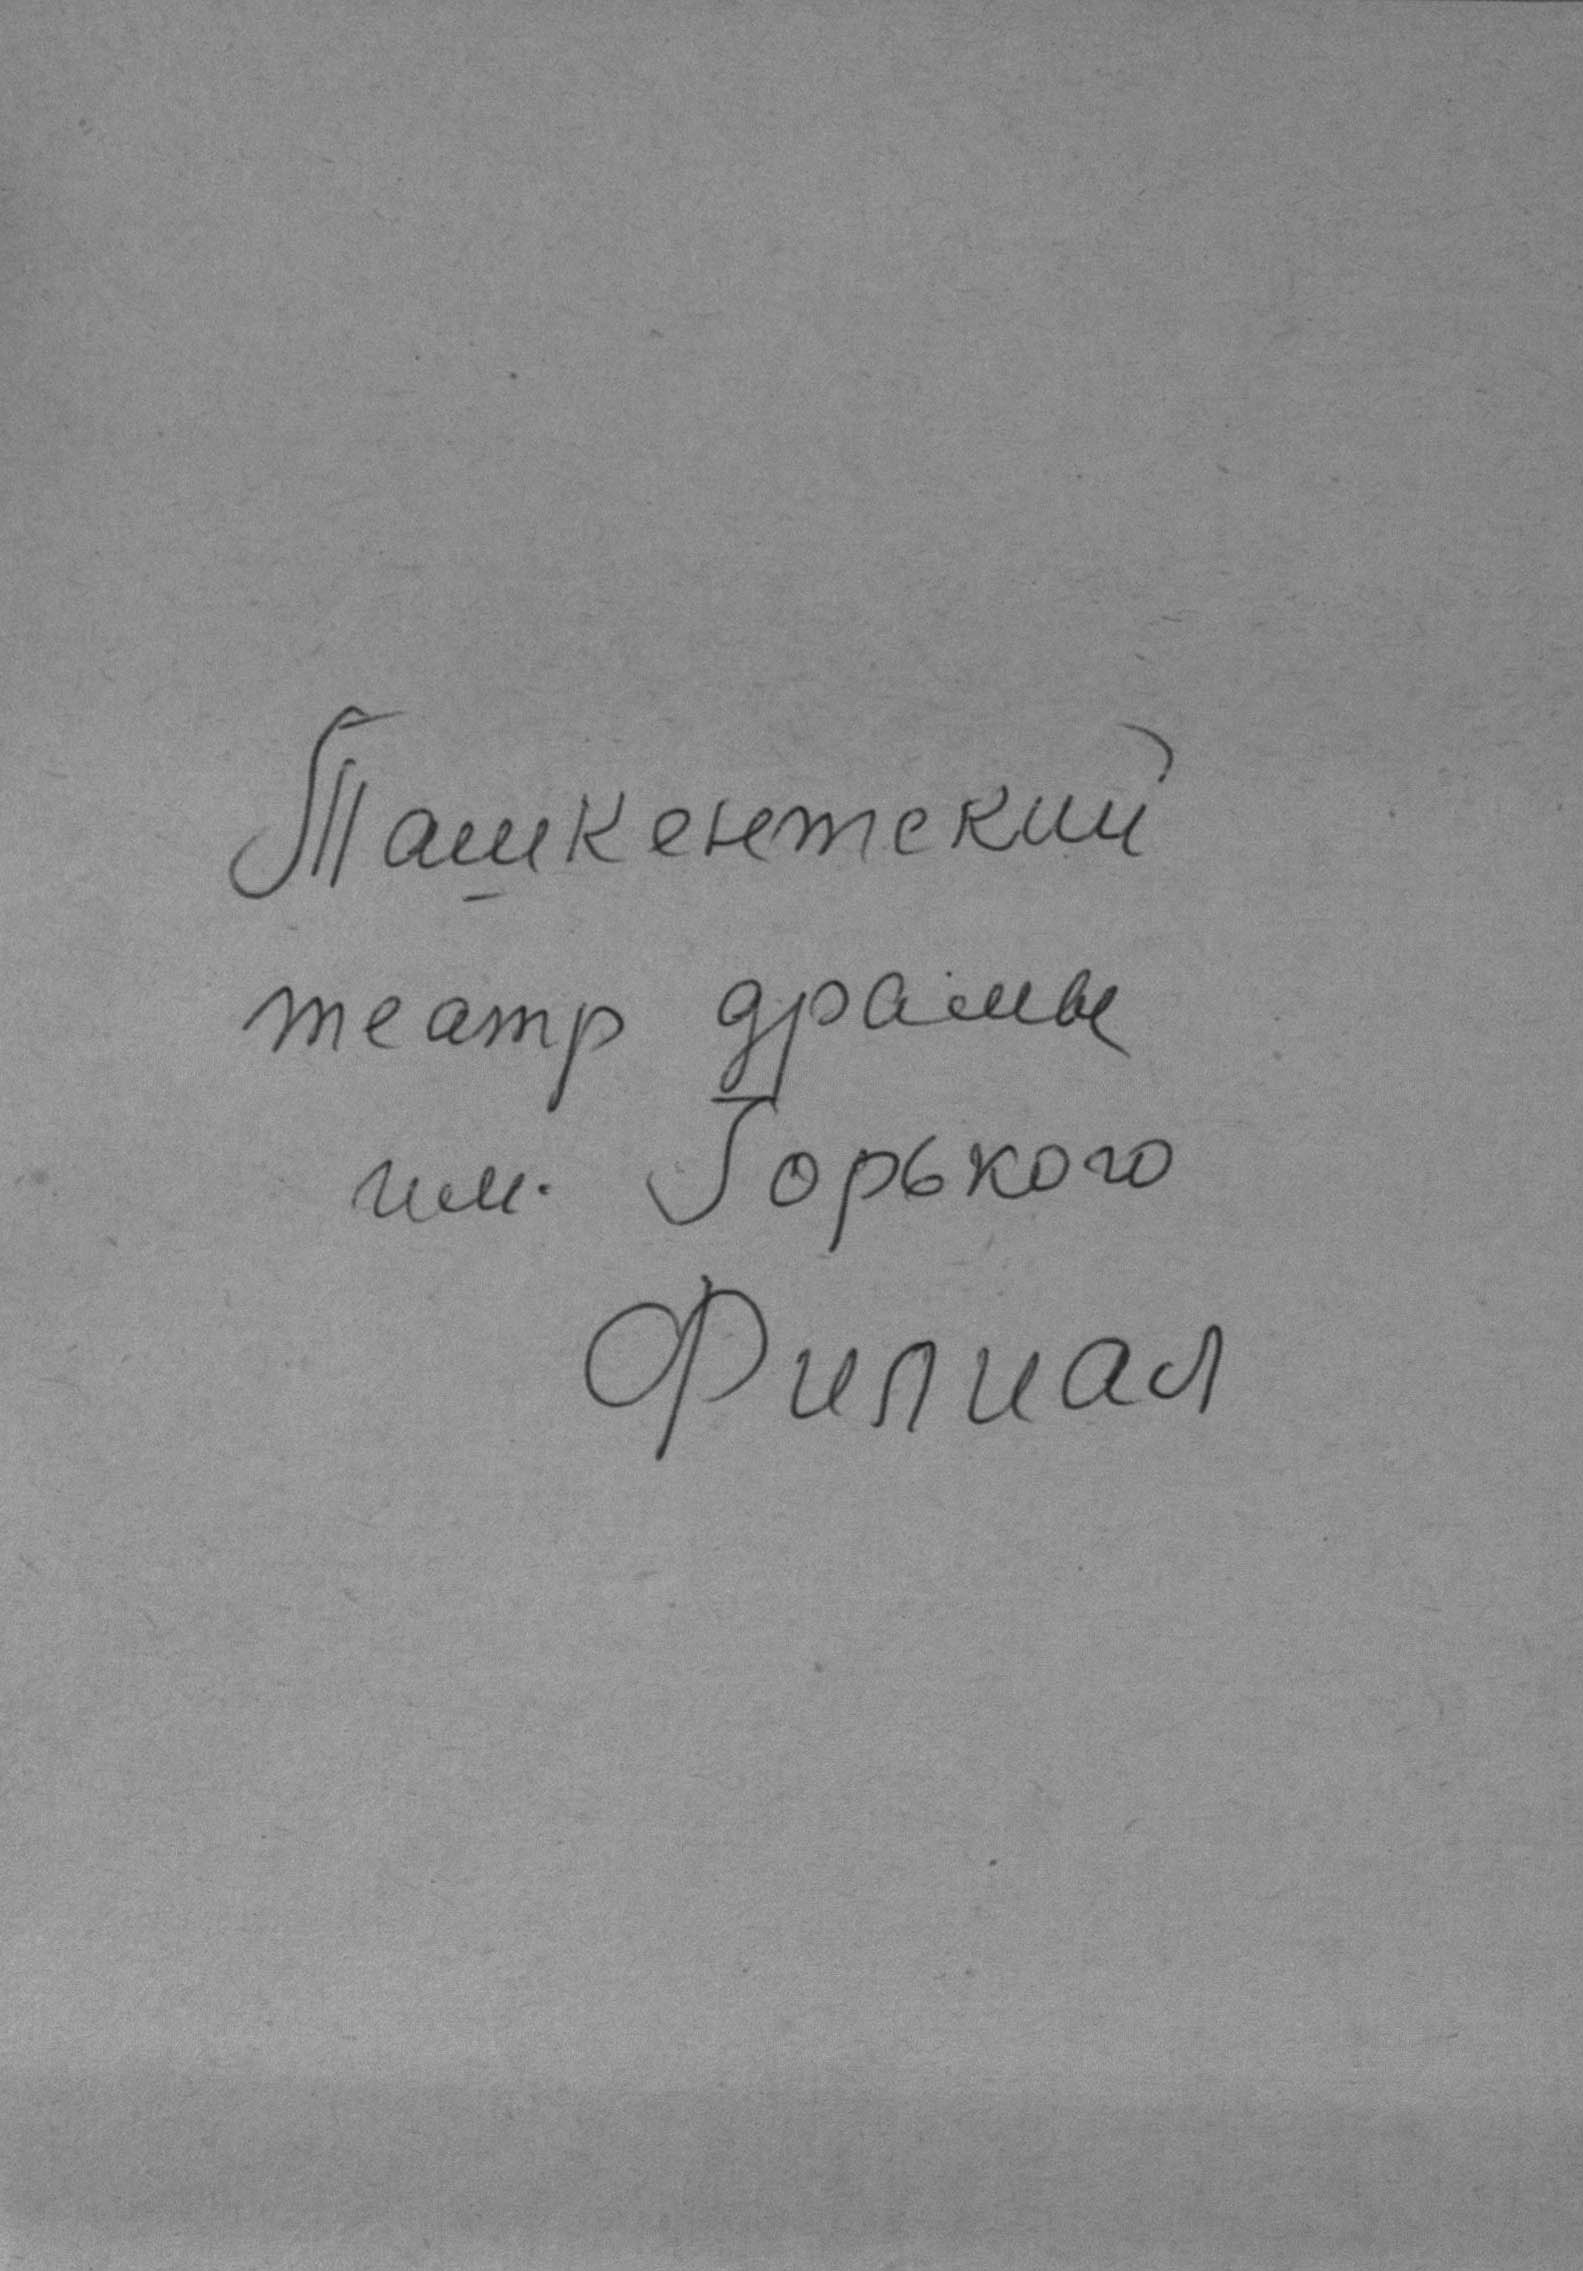 Ташкентский
театр драмы
им. Горького
Филиал